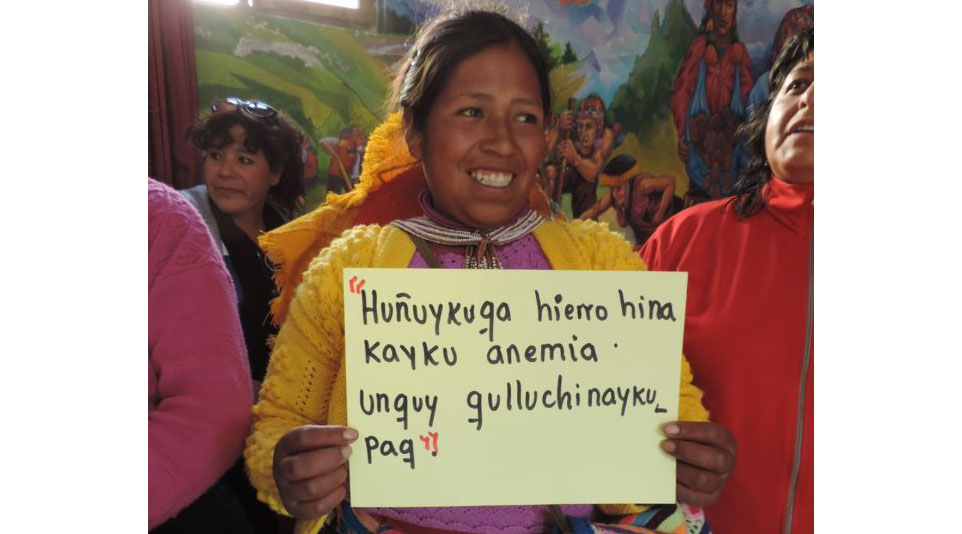 "Huñuykuqa hierro hina
kayku anemia
unquy qulluchinayku_
paq"